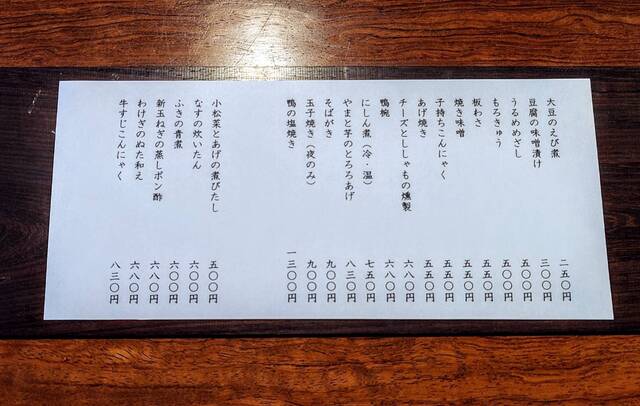 大豆のえび煮 二五〇円
豆腐の味噌漬け 三〇〇円
うるめめざし 五〇〇円
もろきゅう 五〇〇円
板わさ 五五〇円
焼き味噌 五五〇円
子持ちこんにゃく 五五〇円
あげ焼き 五五〇円
チーズとししゃもの燻製 六八〇円
鴨椀 六八〇円
にしん煮（冷・温） 七五〇円
やまと芋のとろろあげ 八三〇円
そばがき 九〇〇円
玉子焼き（夜のみ） 九〇〇円
鴨の塩焼き 一三〇〇円
小松菜とあげの煮びたし 五〇〇円
なすの炊いたん 六〇〇円
ふきの青煮 六〇〇円
新玉ねぎの蒸しポン酢 六八〇円
わけぎのぬた和え 六八〇円
牛すじこんにゃく 八三〇円